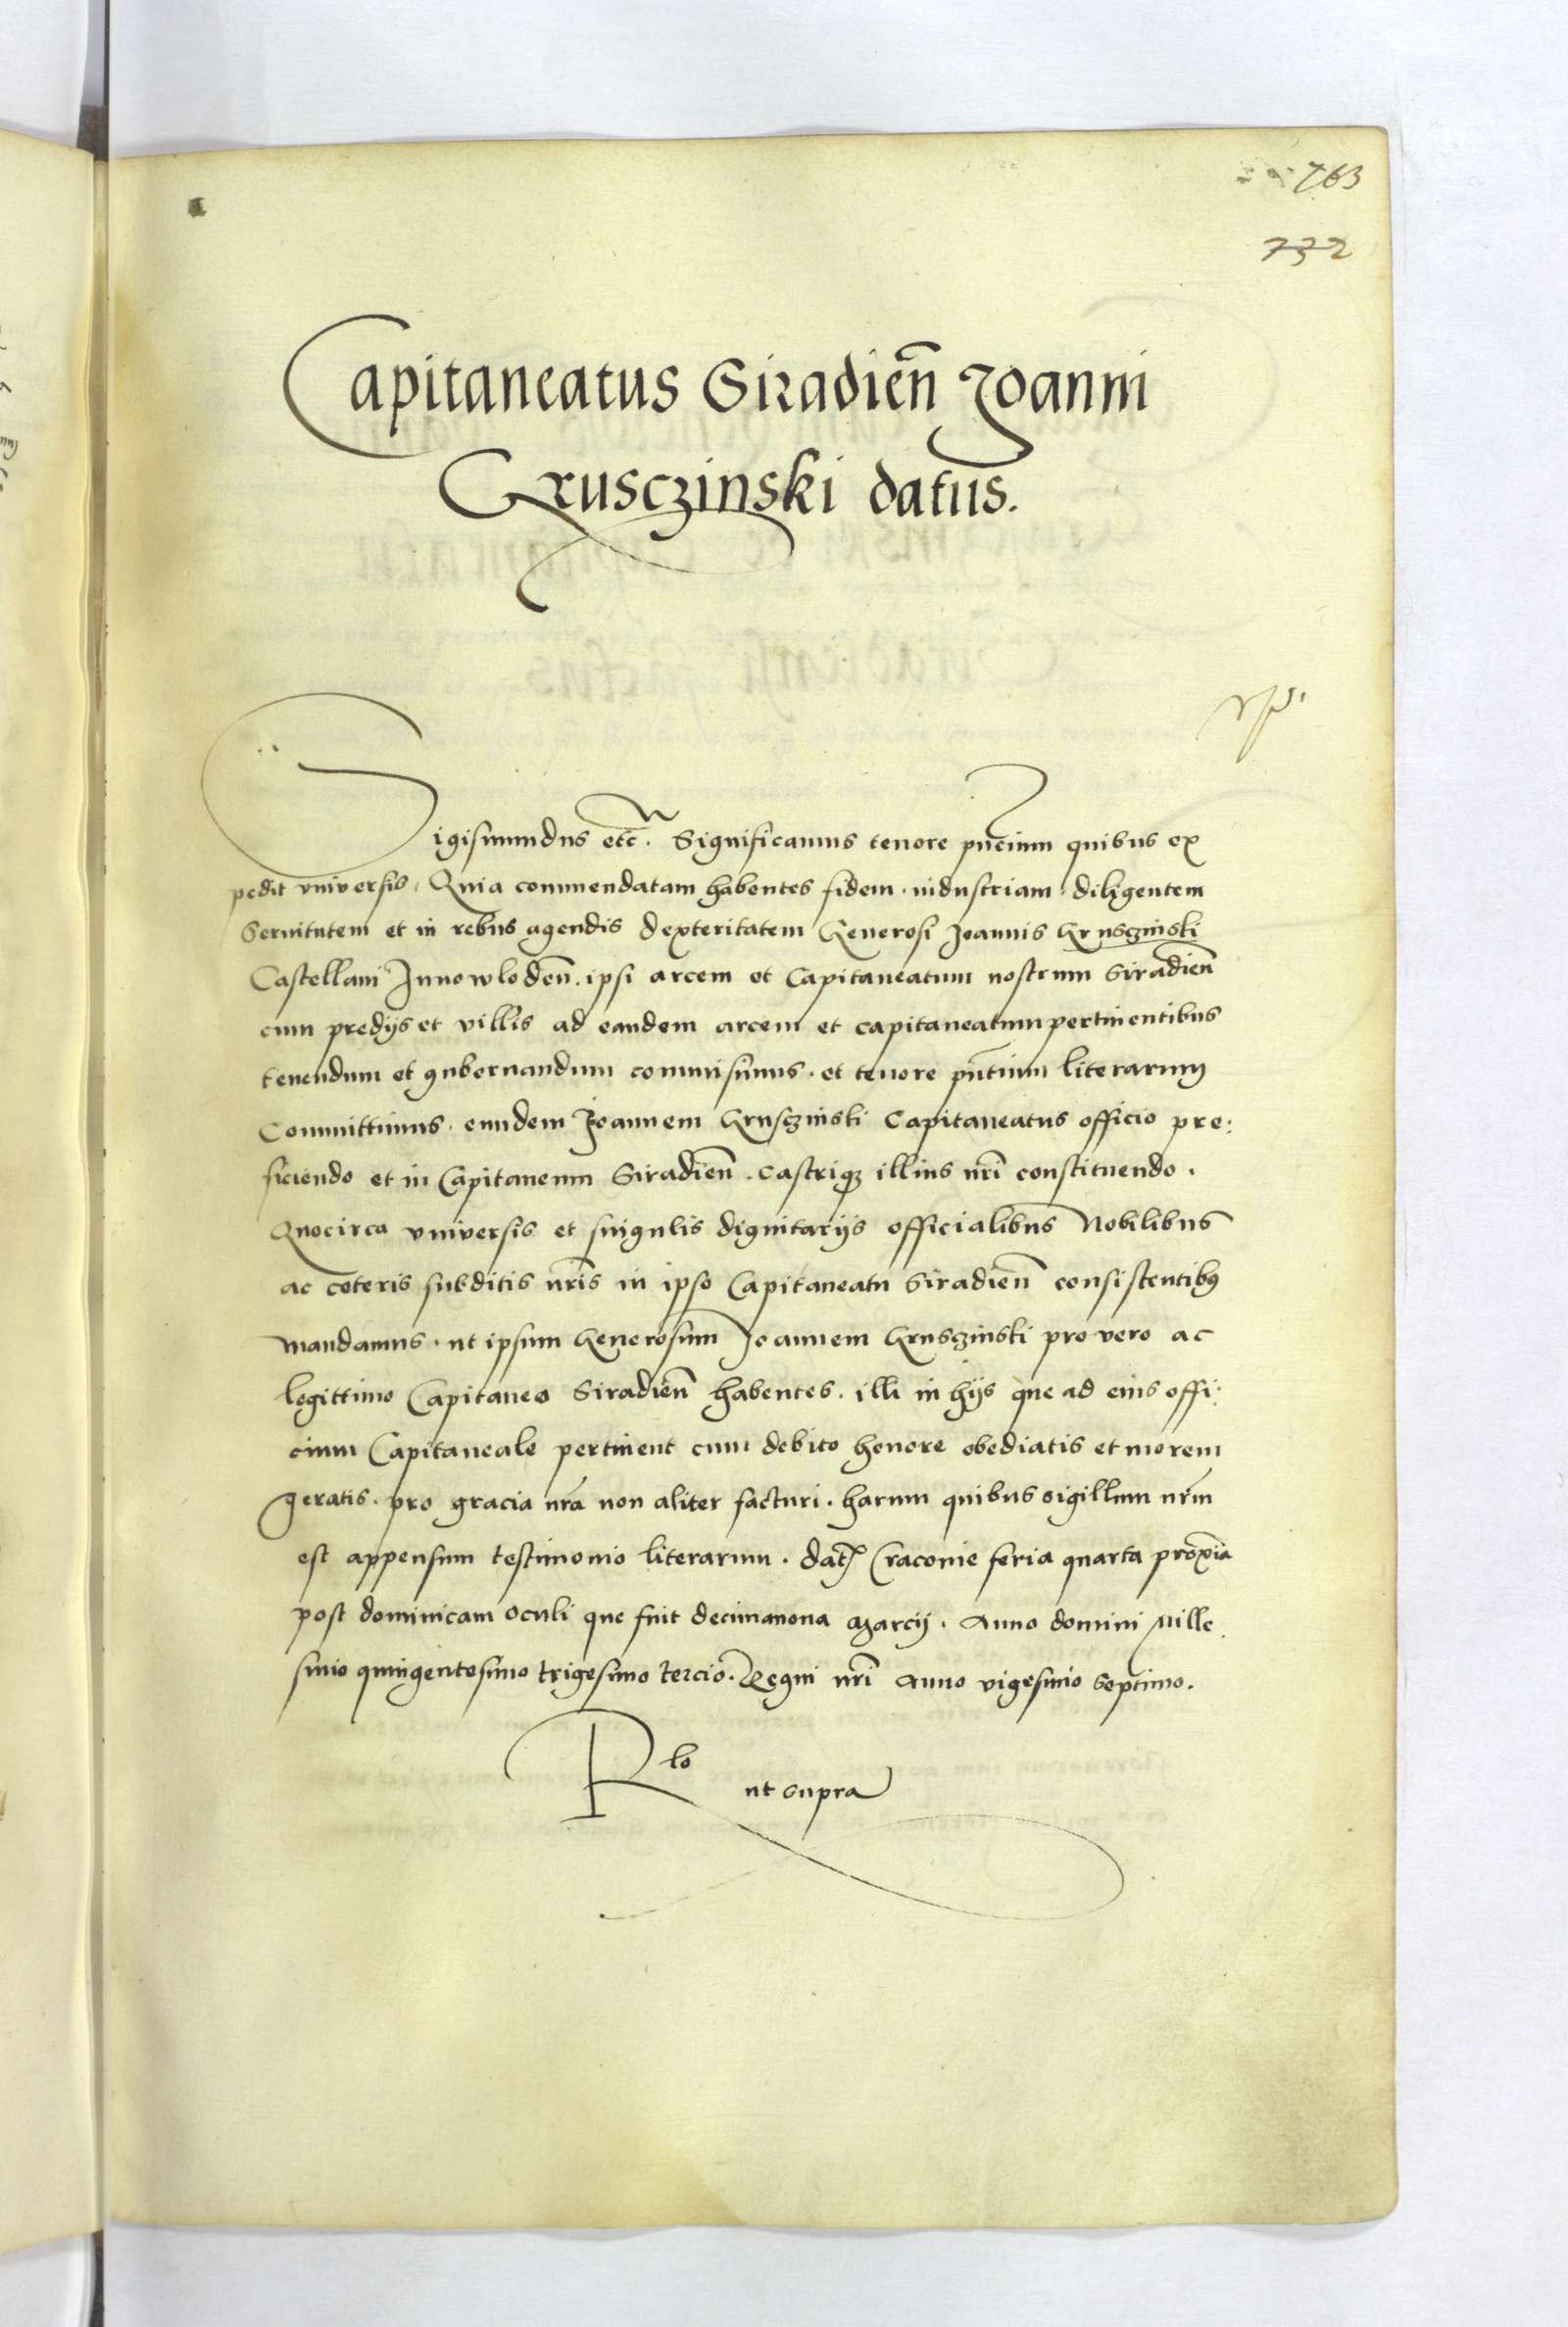 763
732
Capitaneatus Siradien̄ Joanni
Grusczinski datus.
Sigismundus etc̄. Significamus tenore pn̄cium quibus ex
pedit vniversis, Quia commendatam habentes fidem. industriam. diligentem
Servitutem et in rebus agendis dexteritatem Generosi Joannis Grusczinski
Castellani Junowloden̄. ipsi arcem et Capitaneatum nostrum Siradien̄
cum predijs et villis ad eandem arcem et capitaneatum pertinentibus
tenendum et gubernandum commisimus. et tenore pn̄tium literarum
Committimus. eundem Joannem Grusczinski Capitaneatus officio pre:
ficiendo et in Capitaneum Siradien̄. castriqꝫ illius nr̄i constituendo.
Quocirca vniversis et singulis dignitarijs officialibus Nobilibus
ac ceteris subditis nr̄is in ipso Capitaneatu Siradien̄ consistentibꝰ
mandamus. ut ipsum Generosum Joannem Grusczinski pro vero ac
legittimo Capitaneo Siradien̄ habentes. illi in hijs que ad eius offi:
cium Capitaneale pertinent cum debito honore obediatis et morem
geratis. pro gracia nr̄a non aliter facturi. harum quibus sigillum nr̄m
est appensum testimonio literarum. Dat̄ Cracovie feria quarta proxīa
post dominicam oculi que fuit decimanona Marcij. Anno domini Mille
simo quingentesimo trigesimo tercio. Regni nr̄i Anno vigesimo septimo.
Rlo ut supra